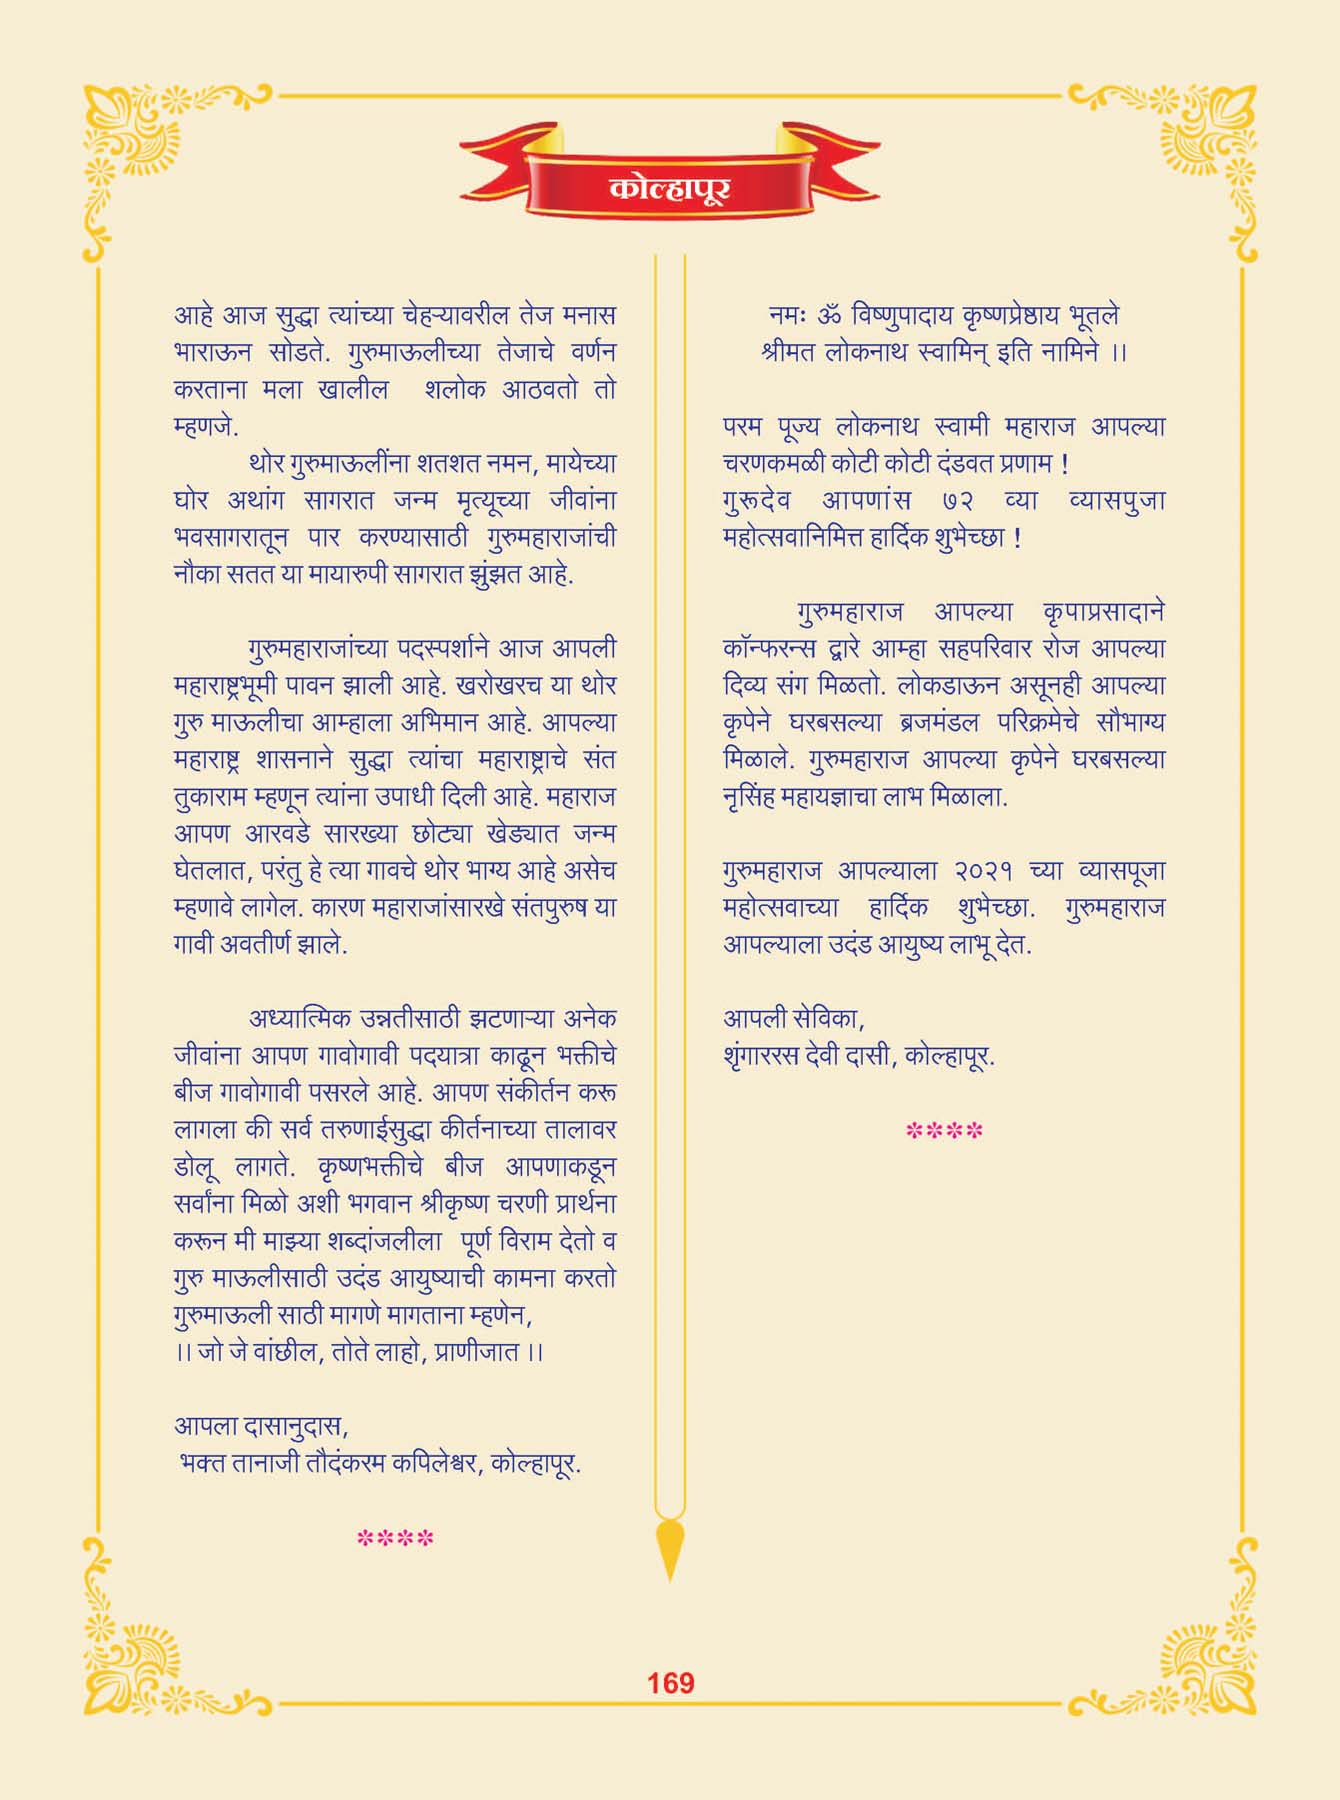 कोल्हापूर
आहे आज सुद्धा त्यांच्या चेहऱ्यावरील तेज मनास
भाराऊन सोडते. गुरुमाऊलीच्या तेजाचे वर्णन
करताना मला खालील शलोक आठवतो तो
म्हणजे.
थोर गुरुमाऊलींना शतशत नमन, मायेच्या
घोर अथांग सागरात जन्म मृत्यूच्या जीवांना
भवसागरातून पार करण्यासाठी गुरुमहाराजांची
नौका सतत या मायारुपी सागरात झुंझत आहे.
गुरुमहाराजांच्या पदस्पर्शाने आज आपली
महाराष्ट्रभूमी पावन झाली आहे. खरोखरच या थोर
गुरु माऊलीचा आम्हाला अभिमान आहे. आपल्या
महाराष्ट्र शासनाने सुद्धा त्यांचा महाराष्ट्राचे संत
तुकाराम म्हणून त्यांना उपाधी दिली आहे. महाराज
आपण आरवडे सारख्या छोट्या खेड्यात जन्म
घेतलात, परंतु हे त्या गावचे थोर भाग्य आहे असेच
म्हणावे लागेल. कारण महाराजांसारखे संतपुरुष या
गावी अवतीर्ण झाले.
अध्यात्मिक उन्नतीसाठी झटणाऱ्या अनेक
जीवांना आपण गावोगावी पदयात्रा काढून भक्तीचे
बीज गावोगावी पसरले आहे. आपण संकीर्तन करू
लागला की सर्व तरुणाईसुद्धा कीर्तनाच्या तालावर
डोलू लागते. कृष्णभक्तीचे बीज आपणाकडून
सर्वांना मिळो अशी भगवान श्रीकृष्ण चरणी प्रार्थना
करून मी माझ्या शब्दांजलीला पूर्ण विराम देतो व
गुरु माऊलीसाठी उदंड आयुष्याची कामना करतो
गुरुमाऊली साठी मागणे मागताना म्हणेन,
।। जो जे वांछील, तोते लाहो, प्राणीजात ।।
आपला दासानुदास,
भक्त तानाजी तौदंकरम कपिलेश्वर, कोल्हापूर.
****
नमः ॐ विष्णुपादाय कृष्णप्रेष्ठाय भूतले
श्रीमत लोकनाथ स्वामिन् इति नामिने ।।
परम पूज्य लोकनाथ स्वामी महाराज आपल्या
चरणकमळी कोटी कोटी दंडवत प्रणाम !
गुरूदेव आपणांस ७२ व्या व्यासपुजा
महोत्सवानिमित्त हार्दिक शुभेच्छा !
गुरुमहाराज आपल्या कृपाप्रसादाने
कॉन्फरन्स द्वारे आम्हा सहपरिवार रोज आपल्या
दिव्य संग मिळतो. लोकडाऊन असूनही आपल्या
कृपेने घरबसल्या ब्रजमंडल परिक्रमेचे सौभाग्य
मिळाले. गुरुमहाराज आपल्या कृपेने घरबसल्या
नृसिंह महायज्ञाचा लाभ मिळाला.
गुरुमहाराज आपल्याला २०२१ च्या व्यासपूजा
महोत्सवाच्या हार्दिक शुभेच्छा. गुरुमहाराज
आपल्याला उदंड आयुष्य लाभू देत.
आपली सेविका,
शृंगाररस देवी दासी, कोल्हापूर.
****
169